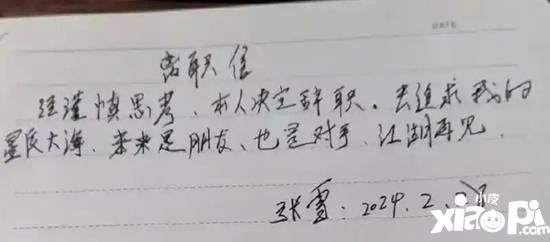 离职信
经谨慎思考，本人决定辞职。去追求我的
星辰大海，未来是朋友、也是对手，江湖再见.
张雪. 2024. 2.
小皮
xiaopi.com